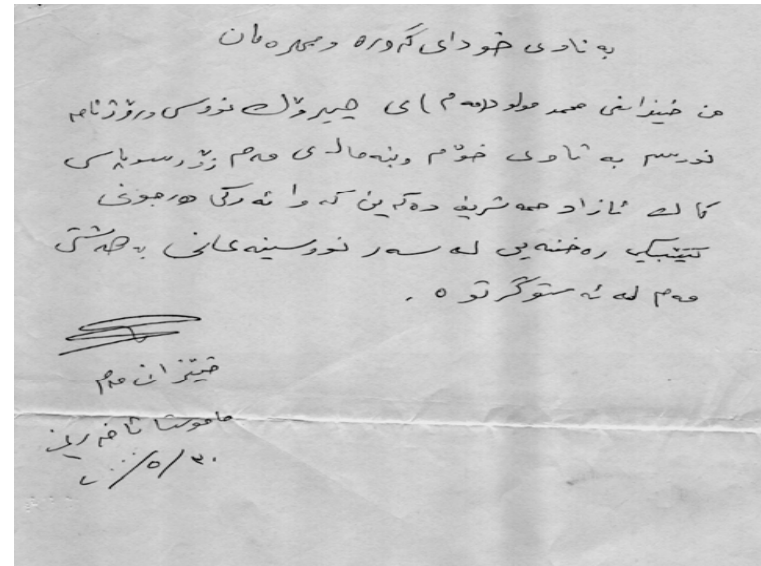 به ناوی خودای گەوره و میهرەبان
من خێزانی محمد مولود (مەم) ی چیرۆك نووس و رۆژنامه
نووسم به ناوی خۆم و بنەماڵەی مەم زۆر سوپاسی
كاك ئازاد حمه شریف دەكەین كه وا ئەركی
كتێبێكی رەخنەیی لە سەر نووسینەكانی بەهەشتی
مەم لە ئەستۆ گرتوه.
خێزانی مەم
مامۆستا ئافرین
٣٠/٥/